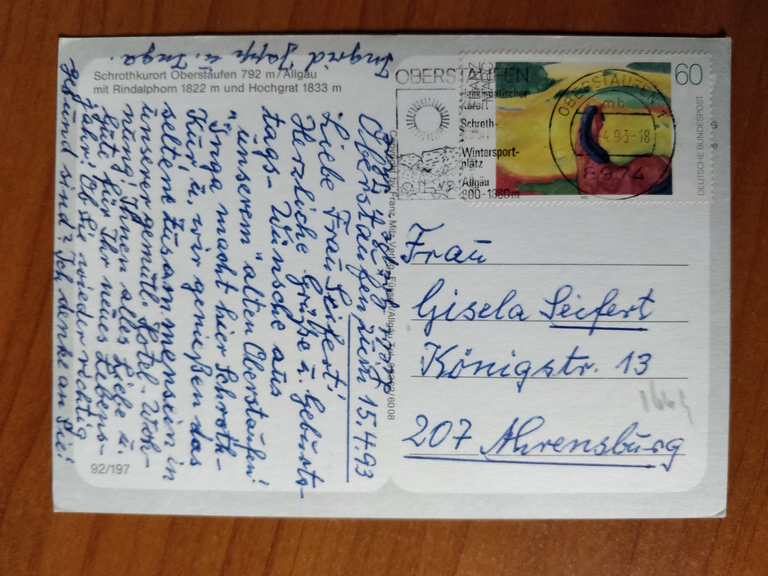 Schrothkurort Oberstaufen 792 m / Allgäu
mit Rindalphorn 1822 m und Hochgrat 1833 m
Oberstaufen 15.4.93
Liebe Frau Seifert!
Herzliche Grüße u. Geburts-
tags-Wünsche aus
"unserem" alten Oberstaufen!
Inga macht hier Schroth-
Kur u. wir genießen das
seltene Zusammensein in
unserer gemütl. Hotel-Woh-
nung! Ihnen alles Liebe u.
Gute für Ihr neues Lebens-
jahr! Ob Sie wieder richtig
gesund sind? Ich denke an Sie!
Ingrid u. Inga.
92/197
OBERSTAUFEN
Schroth-
Wintersport-
platz
Allgäu
OBERSTAUFEN 1
mb
4.93-18
8974
60
DEUTSCHE BUNDESPOST
Frau
Gisela Seifert
Königstr. 13
207 Ahrensburg